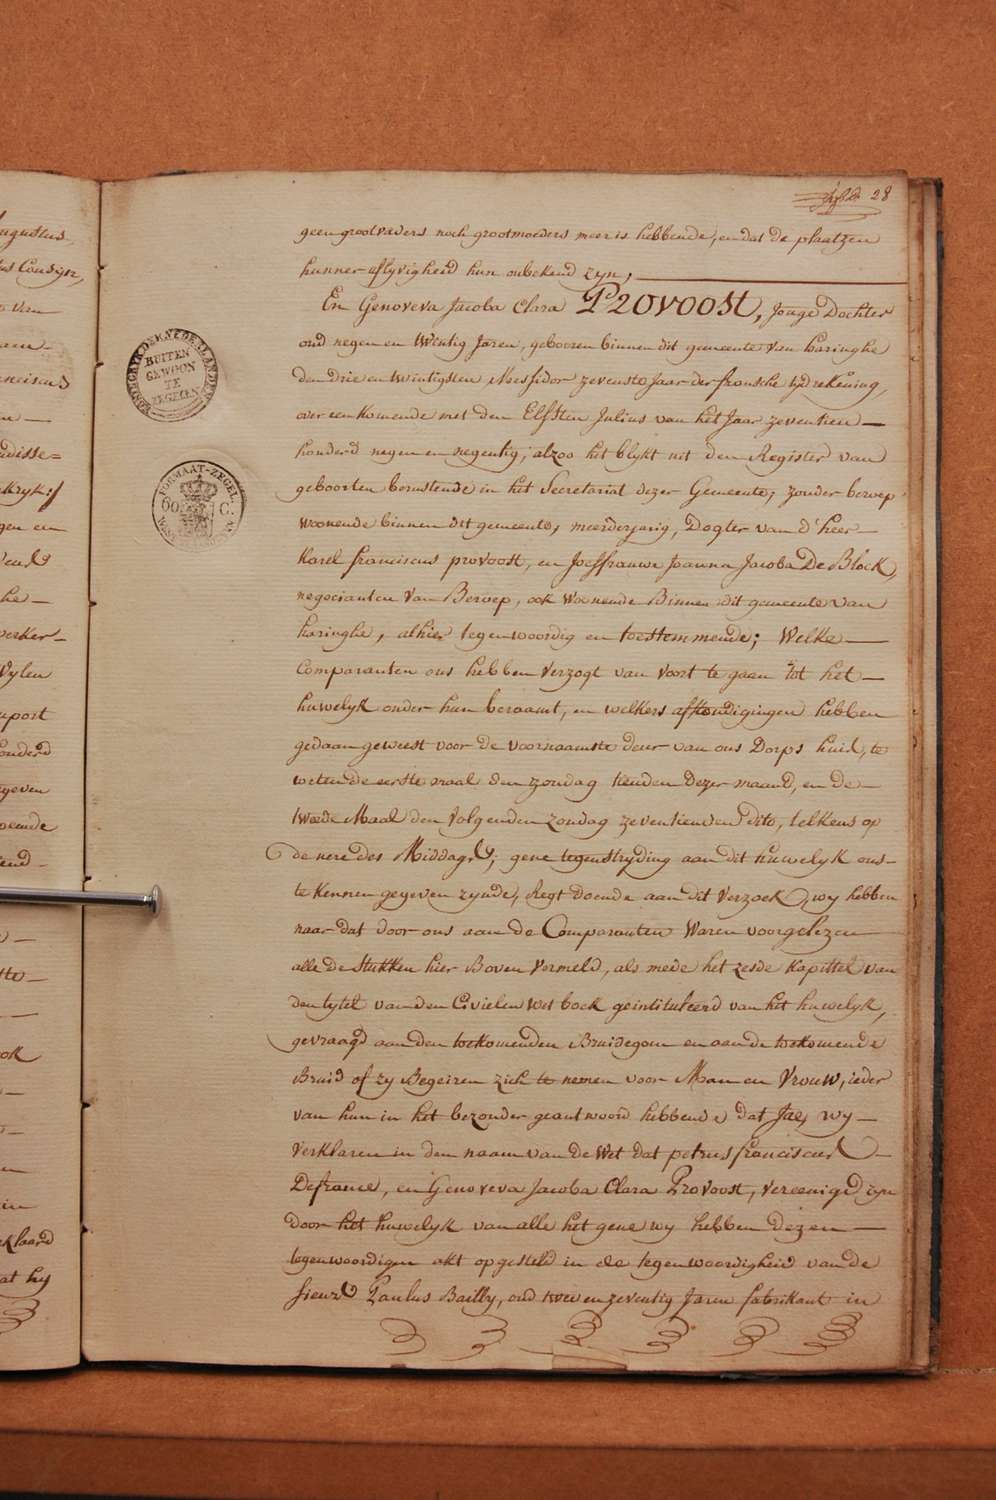 28
geen grootvaders noch grootmoeders meer is hebbende, en dat de plaatzen
hunner aflyvigheid hun onbekend zyn,
En Genoveva Jacoba Clara Provoost, Jonge Dochter
oud negen en twintig Jaren, geboren binnen dit gemeente van haringhe
den drie en twintigsten Messidor zevenste Jaar der fransche tydrekening,
over een komende met den Elfsten Julius van het Jaar zeventien
honderd negen en negentig, alzoo het blykt uit den Register van
geboorten berustende in het Secretariat dezer Gemeente, zonder beroep
woonende binnen dit gemeente, meerderjarig, Dogter van d'heer
Karel franciscus provoost, en Joeffrauwe Joanna Jacoba De Block,
negocianten van Beroep, ook woonende Binnen dit gemeente van
haringhe, alhier tegenwoordig en toestemmende; Welke
Comparanten ons hebben verzogt van voort te gaen tot het
huwelyk onder hun beraamt, en welkers afkondigingen hebben
gedaan geweest voor de voornaamste deur van ons Dorps huis, te
weten de eerste maal den zondag tienden dezer maand, en de
twede Maal den volgenden zondag zeventienden dito, telkens op
de nere des Middags; gene tegenstryding aan dit huwelyk ons
te kennen gegeven zynde, Regt doende aan dit verzoek, wy hebben
naar dat door ons aan de Comparanten Waren voorgelezen
alle de Stukken hier Boven vermeld, als mede het zesde kapittel van
den tytel van den Civielen wet boek geintituleerd van het huwelyk,
gevraagd aan den toekomenden Bruidegom en aan de toekomende
Bruid of zy Begeiren zich te nemen voor Man en Vrouw, ieder
van hun in het bezonder geantwoord hebbende dat Jae, wy
verklaren in den naam van de Wet dat petrus franciscus
Defrance, en Genoveva Jacoba Clara Provoost, vereenigd zyn
door het huwelyk van alle het gene wy hebben dezen
tegenwoordigen akt opgesteld in de tegenwoordigheid van de
sieurs Paulus Bailly, oud twee en zeventig Jaren fabrikant in
KONINGRYK DER NEDERLANDEN
BUITEN
GEWOON
TE
ZEGELEN
FORMAAT-ZEGEL
60 C.